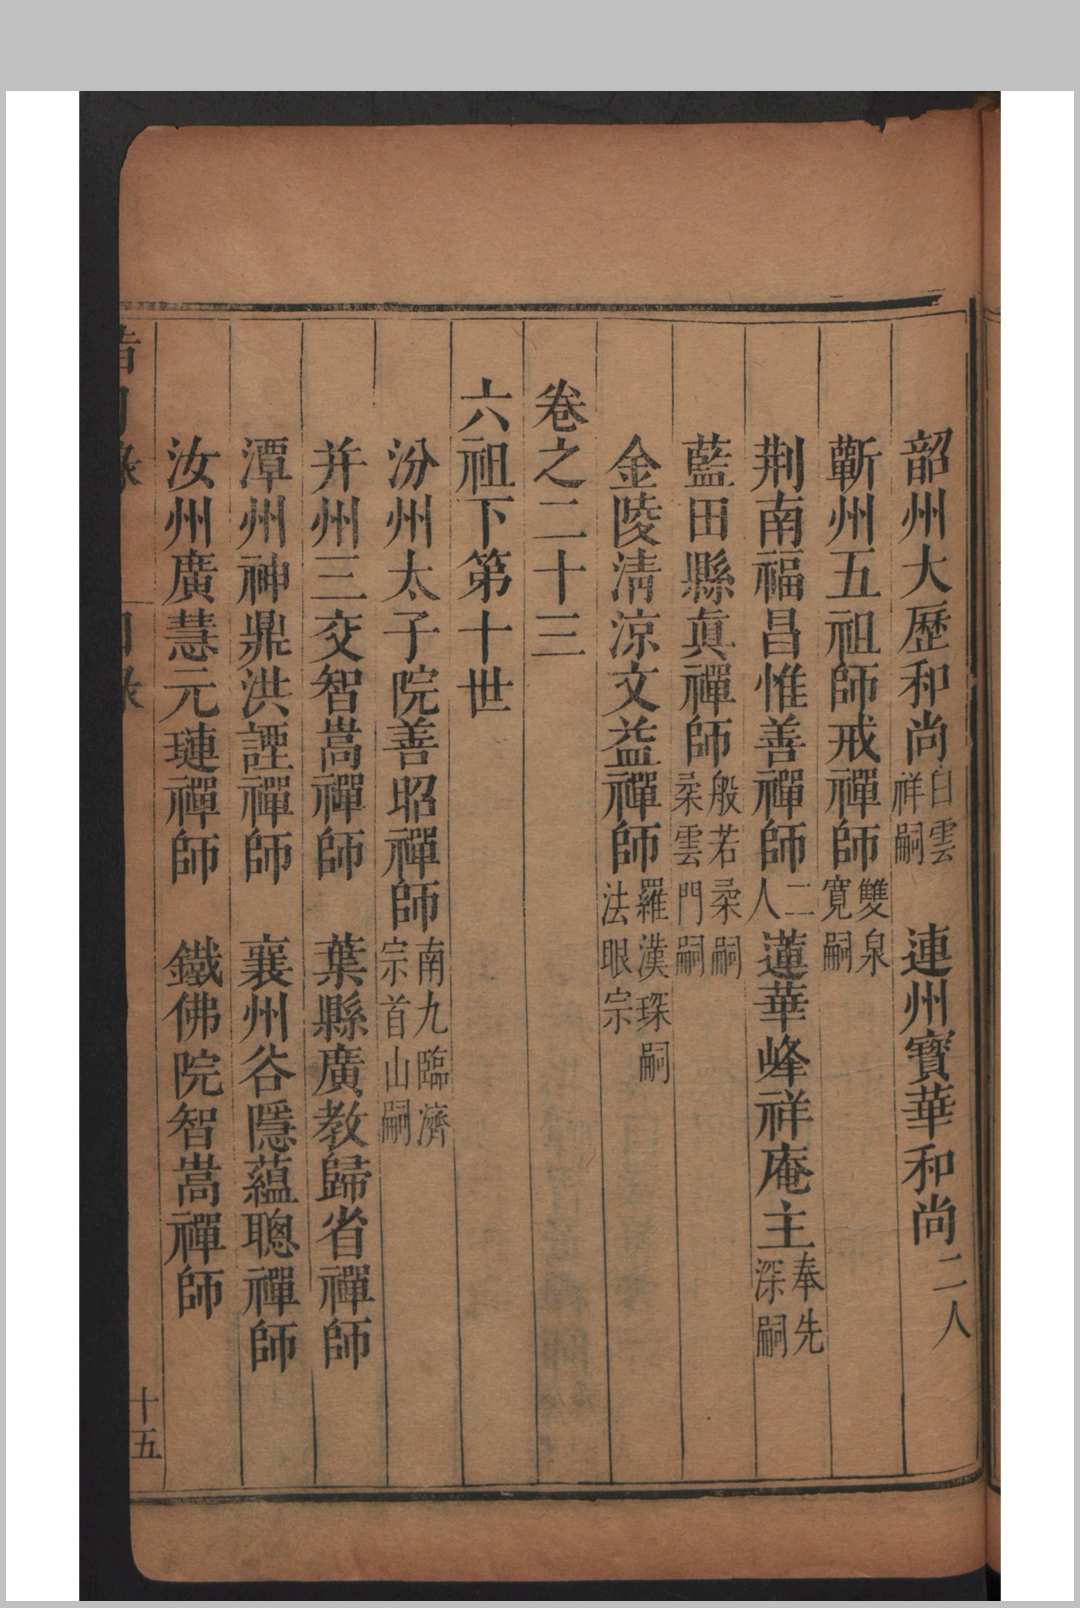 韶州大歷和尚白雲祥嗣　連州寶華和尚二人
蘄州五祖師戒禪師雙泉寬嗣
荆南福昌惟善禪師二人蓮華峰祥庵主奉先深嗣
藍田縣真禪師般若柔嗣柔雲門嗣
金陵清涼文益禪師羅漢琛嗣法眼宗
卷之二十三
六祖下第十世
汾州太子院善昭禪師南九臨濟宗首山嗣
并州三交智嵩禪師　葉縣廣教歸省禪師
潭州神鼎洪諲禪師　襄州谷隱蘊聰禪師
汝州廣慧元璉禪師　鐵佛院智嵩禪師
十五